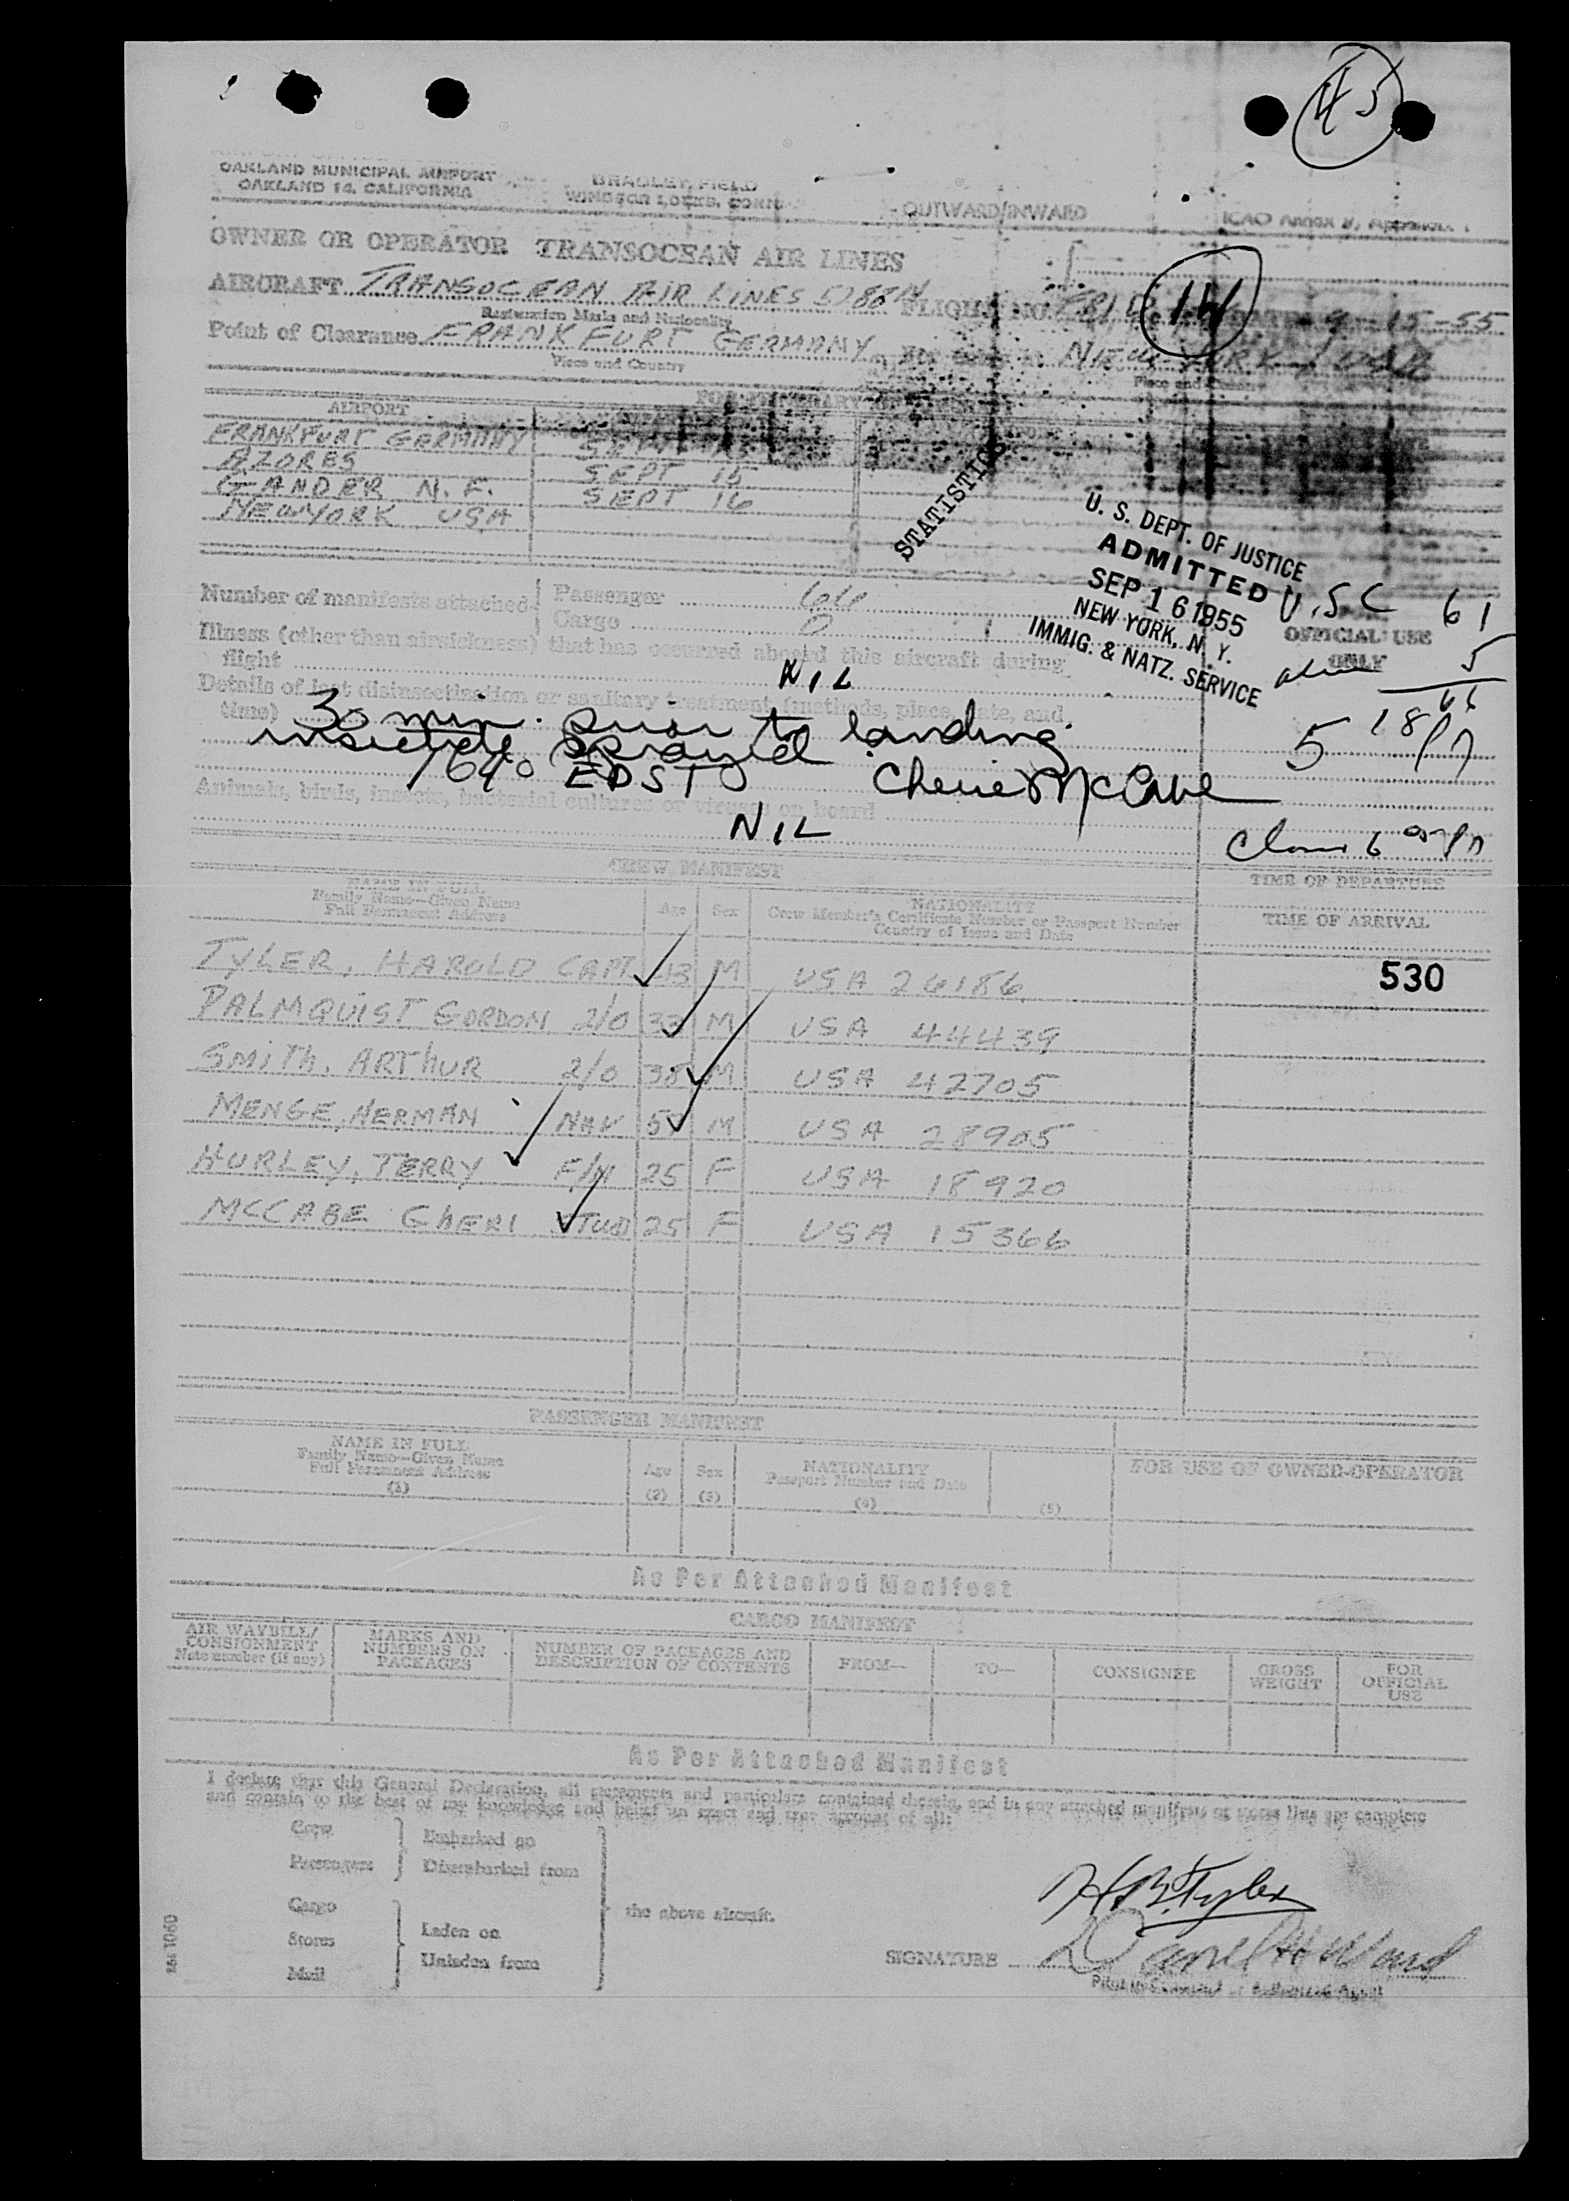 45
OAKLAND MUNICIPAL AIRPORT
OAKLAND 14, CALIFORNIA
BRADLEY FIELD
WINDSOR LOCKS, CONN.
OUTWARD/INWARD
ICAO Annex 9, Appendix 1
OWNER OR OPERATOR TRANSOCEAN AIR LINES
AIRCRAFT TRANSOCEAN AIR LINES
FLIGHT NO.
14
9-15-55
Registration Marks and Nationality
Point of Clearance FRANKFURT GERMANY
NEW YORK, USA
Place and Country
Place and Country
AIRPORT
FRANKFURT GERMANY
AZORES SEPT 15
GANDER N.F. SEPT 16
NEW YORK USA
STATISTICS
U. S. DEPT. OF JUSTICE
ADMITTED
SEP 16 1955
NEW YORK, N. Y.
IMMIG. & NATZ. SERVICE
U.S.C 61
5
66
Number of manifests attached
Passenger 66
Cargo 0
OFFICIAL USE
ONLY
Illness (other than airsickness) that has occurred aboard this aircraft during
flight NIL
Details of last disinsectization or sanitary treatment (methods, place, date, and
time) 30 min. prior to landing
insecticide sprayed
1640 EDST Cherie McCabe
Animals, birds, insects, bacterial cultures or viruses on board
NIL
CREW MANIFEST
NAME IN FULL
Family Name—Given Name
Full Permanent Address
Age
Sex
NATIONALITY
Crew Member's Certificate Number or Passport Number
Country of Issue and Date
TIME OF DEPARTURE
TIME OF ARRIVAL
530
TYLER, HAROLD CAPT. 43 M USA 26186
PALMQUIST GORDON 2/O 33 M USA 44439
SMITH, ARTHUR 2/O 38 M USA 42705
MENGE, HERMAN NAV M USA 28905
HURLEY, TERRY 25 F USA 18920
MCCABE CHERI STUD 25 F USA 15366
PASSENGER MANIFEST
NAME IN FULL
Family Name—Given Name
Full Permanent Address
(1)
Age
(2)
Sex
(3)
NATIONALITY
Passport Number and Date
(4)
(5)
FOR USE OF OWNER-OPERATOR
As Per Attached Manifest
CARGO MANIFEST
AIR WAYBILL/
CONSIGNMENT
Note number (if any)
MARKS AND
NUMBERS ON
PACKAGES
NUMBER OF PACKAGES AND
DESCRIPTION OF CONTENTS
FROM—
TO—
CONSIGNEE
GROSS
WEIGHT
FOR
OFFICIAL
USE
As Per Attached Manifest
I declare that this General Declaration, all statements and particulars contained therein, and in any attached manifests or stores lists are complete
and contain to the best of my knowledge and belief an exact and true account of all:
Crew
Passengers
Embarked on
Disembarked from
Cargo
Stores
Mail
Laden on
Unladen from
the above aircraft.
H B Tyler
SIGNATURE
Pilot in Command or Authorized Agent